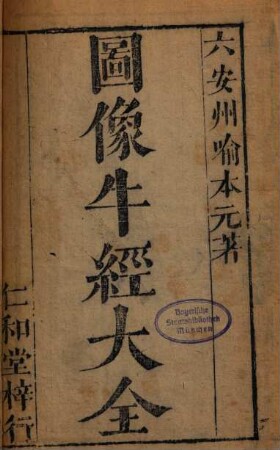 六安州喻本元著
圖像牛經大全
仁和堂梓行
Bayerische
Staatsbibliothek
München